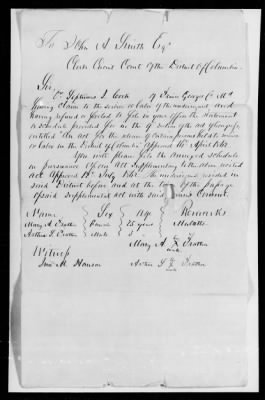 To John A. Smith Esqr.
Clerk Circuit Court of the District of Columbia
Sir,
Septimus J. Cook of Prince Georges Co Md
having claim to the service or labor of the undersigned and
having refused or failed to file in your office the statement
or schedule provided for in the 9 section of the act of Congress
entitled "An Act for the release of certain persons held to service
or labor in the District of Columbia" approved 16th April 1862.
You will please file the annexed schedule
in pursuance of an act supplementary to the above recited
act approved 12th July 1862. The undersigned resided in
said District before and at the time of the passage
of said supplemental act with said owners consent.
Name Sex Age Remarks
Mary A. Trotter Female 25 years Mulatto
Arthur T. Trotter Male 3 "
Mary A. her X mark Trotter
Witness
Jno. M. Hanson Arthur T. his X mark Trotter